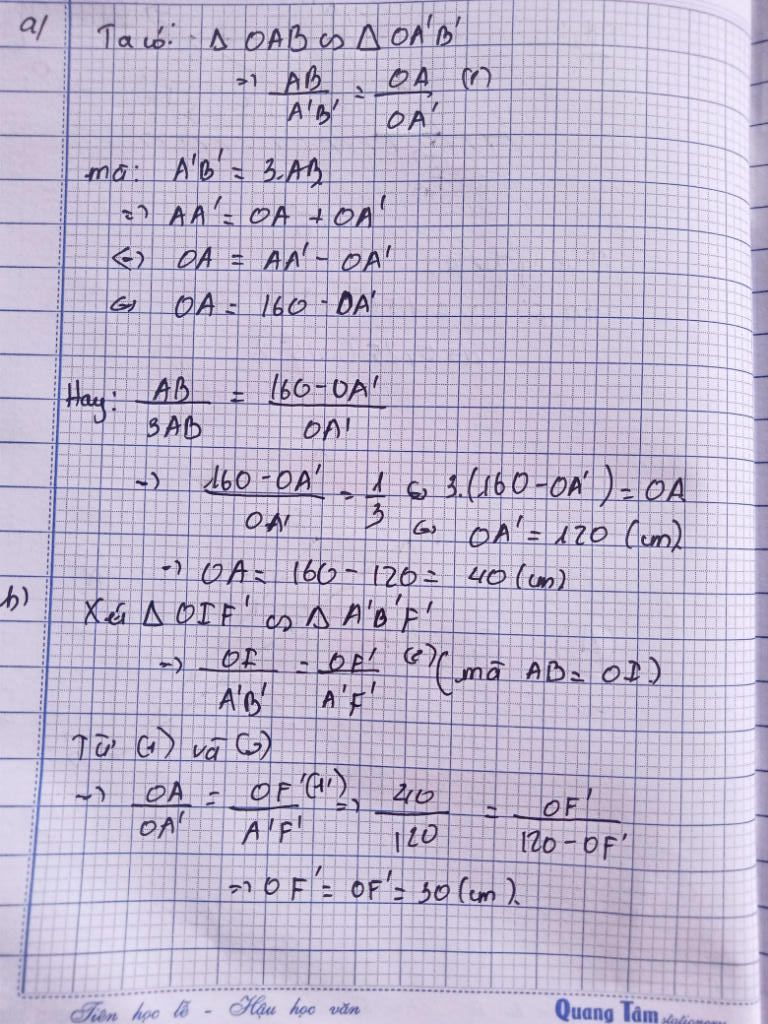 a/ Ta có: Δ OAB ∽ Δ OA'B'
=> AB/A'B' = OA/OA' (1)
mà: A'B' = 3.AB
=> AA' = OA + OA'
<=> OA = AA' - OA'
<=> OA = 160 - OA'
Hay: AB/3AB = 160-OA'/OA'
=> 160-OA'/OA' = 1/3 <=> 3.(160-OA') = OA
<=> OA' = 120 (cm)
=> OA = 160 - 120 = 40 (cm)
b) Xét Δ OIF' ∽ Δ A'B'F'
=> OI/A'B' = OF'/A'F' (2) (mà AB = OI)
Từ (1) và (2)
=> OA/OA' = OF'/A'F' => 40/120 = OF'/120-OF'
=> OF' = OF' = 30 (cm).
Tiên học lễ - Hậu học văn
Quang Tâm stationery